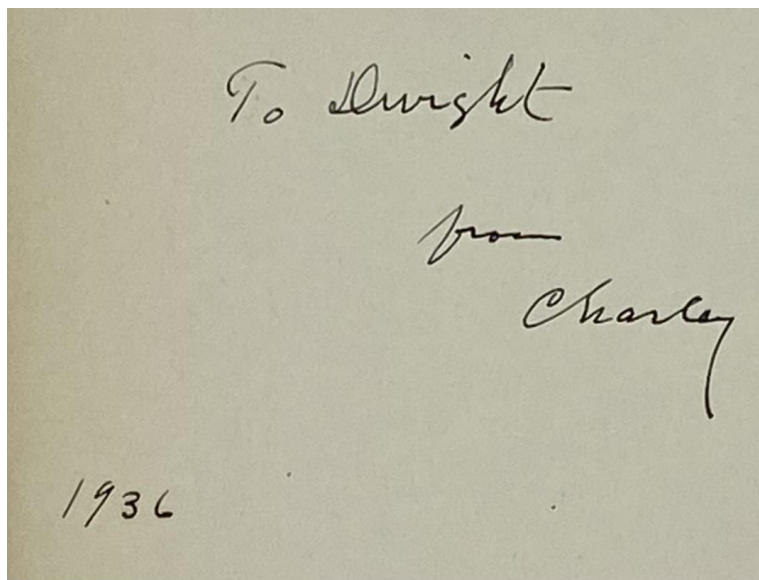 To Dwight
from
Charley
1936